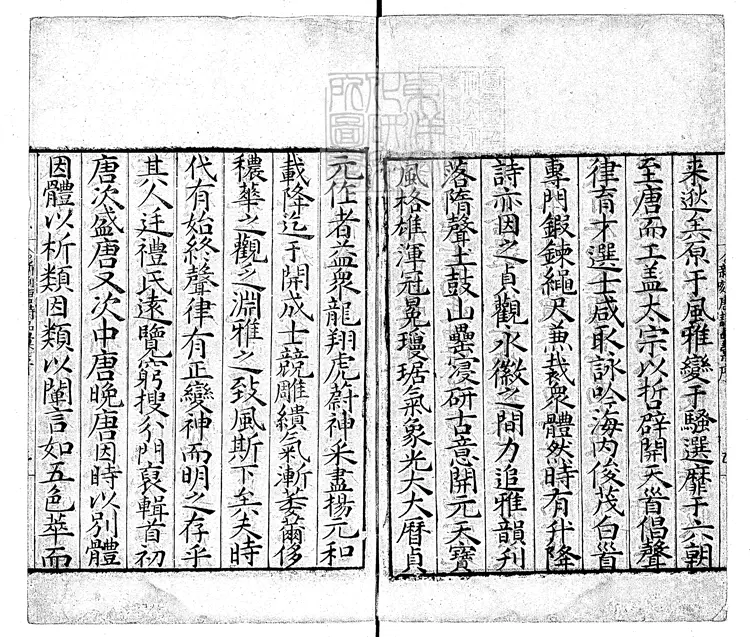 来逖矣原于風雅變于騷選靡于六朝
至唐而工盖太宗以哲辟開天首倡聲
律育才選士咸取詠吟海内俊茂白首
專門鍛鍊繩尺兼裁衆體然時有升降
詩亦因之貞觀永徽之間力追雅韻刋
落隋聲土鼓山罍寖研古意開元天寳
風格雄渾冠冕瓊琚氣象光大大曆貞
元作者益衆龍翔虎蔚神采盡揚元和
載降迄于開成士競雕繢氣漸萎薾侈
穠華之觀乏淵雅之致風斯下矣夫時
代有始終聲律有正變神而明之存乎
其人廷禮氏遠覽窮搜分門裒輯首初
唐次盛唐又次中唐晚唐因時以別體
因體以析類因類以闡言如五色萃而